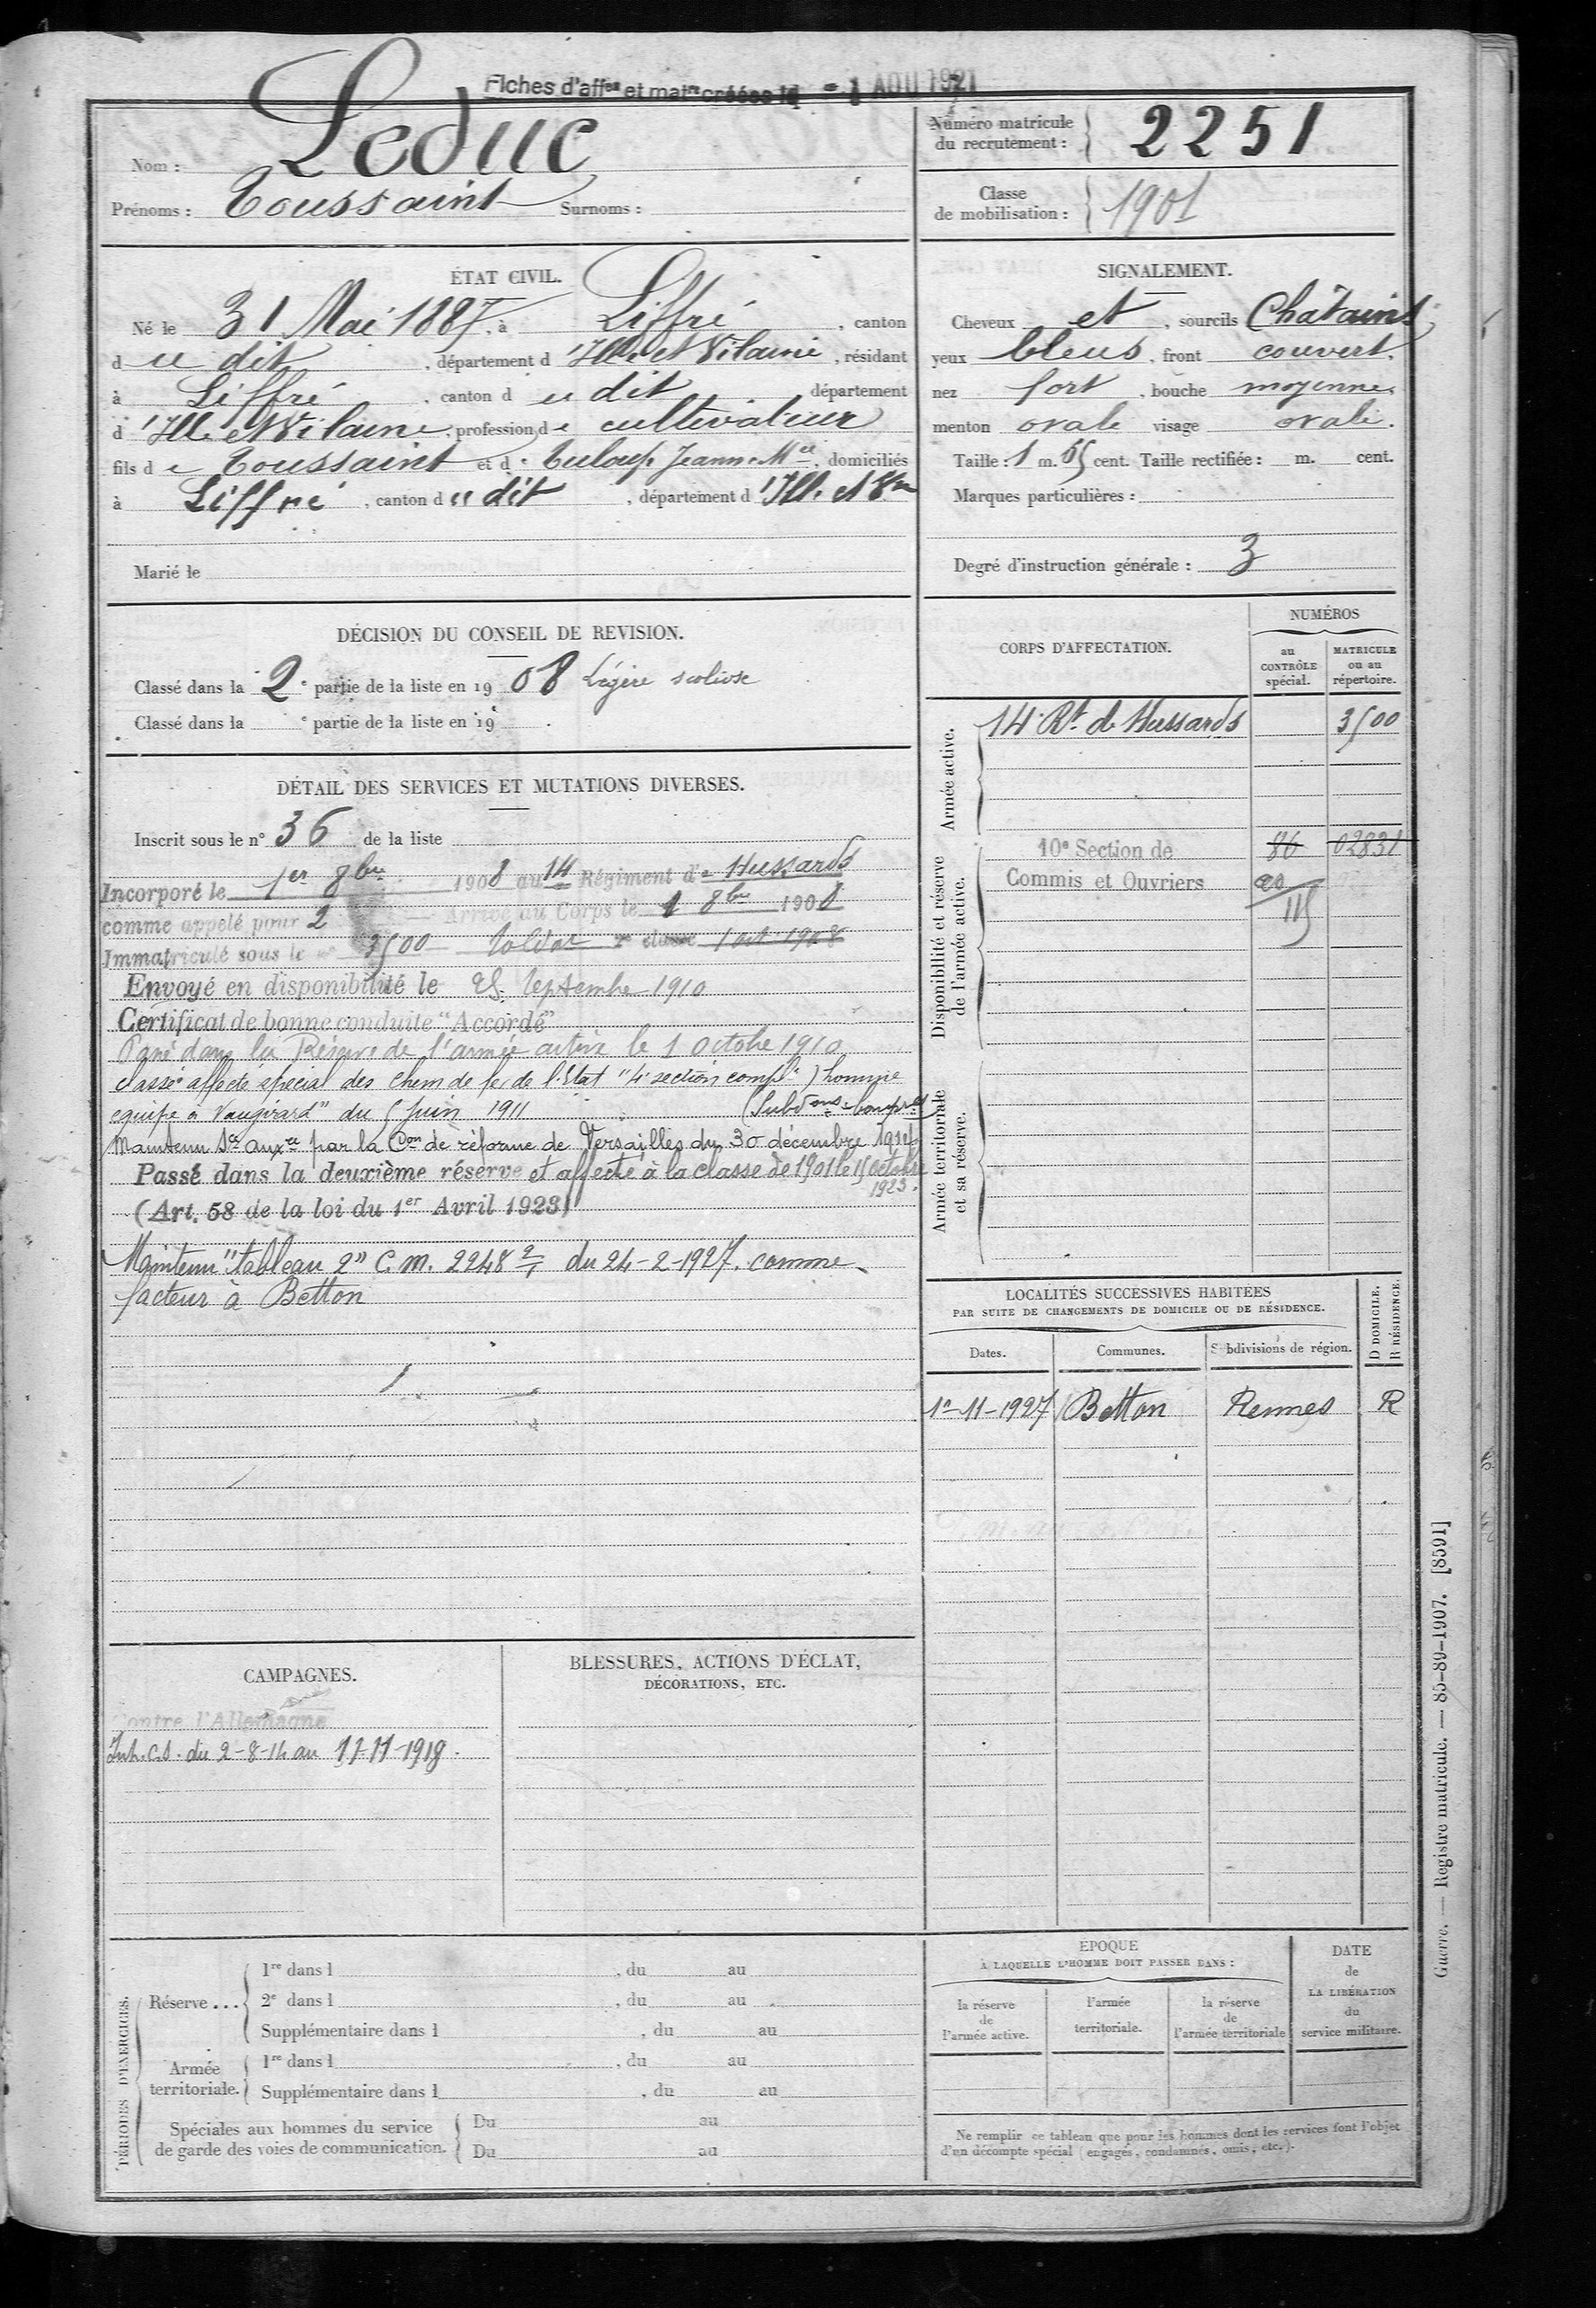 Fiches d'aff^on et mat^re créées le - 1 AOU 1921
Nom : Leduc
Prénoms : Toussaint Surnoms :
Numéro matricule
du recrutement : 2251
Classe
de mobilisation : 1901
ÉTAT CIVIL.
Né le 31 Mai 1887, à Liffré, canton
du dit, département d'Ille et Vilaine, résidant
à Liffré, canton du dit département
d'Ille et Vilaine, profession de cultivateur
fils de Toussaint et d. Jeanne Mie, domiciliés
à Liffré, canton du dit, département d'Ille et Vne
Marié le
SIGNALEMENT.
Cheveux et, sourcils Châtains
yeux bleus, front couvert.
nez fort, bouche moyenne,
menton ovale visage ovale.
Taille : 1 m. 65 cent. Taille rectifiée : m. cent.
Marques particulières :
Degré d'instruction générale : 3
DÉCISION DU CONSEIL DE REVISION.
Classé dans la 2e partie de la liste en 1908 Légère scoliose
Classé dans la e partie de la liste en 19
DÉTAIL DES SERVICES ET MUTATIONS DIVERSES.
Inscrit sous le n° 36 de la liste
Incorporé le 1er 8bre 1908 au 14 Régiment de Hussards
comme appelé pour 2 Arrivé au Corps le 1 8bre 1908
Immatriculé sous le n° 3500 soldat 2e classe 1 oct 1908
Envoyé en disponibilité le 25 Septembre 1910
Certificat de bonne conduite "Accordé"
Passé dans la Réserve de l'armée active le 1 Octobre 1910
classé affecté spécial des chem de fer de l'Etat "4e section compl." homme
equipe à Vaugirard" du 5 Juin 1911 (Subdons
Maintenu Sce auxre par la Con de réforme de Versailles du 30 décembre
Passé dans la deuxième réserve et affecté à la classe de 1901 le 15 Octobre
1923.
(Art. 58 de la loi du 1er Avril 1923)
Maintenu "tableau 2" C.m. 2248 2/1 du 24-2-1927. comme
facteur à Betton
CORPS D'AFFECTATION.
NUMÉROS
au
CONTRÔLE
spécial.
MATRICULE
ou au
répertoire.
Armée active.
14e Rt de Hussards 3500
Disponibilité et réserve
de l'armée active.
10e Section de 86 02831
Commis et Ouvriers 20
115
Armée territoriale
et sa réserve.
LOCALITÉS SUCCESSIVES HABITÉES
PAR SUITE DE CHANGEMENTS DE DOMICILE OU DE RÉSIDENCE.
Dates. Communes. Subdivisions de région.
D DOMICILE.
R RÉSIDENCE.
1e-11-1927 Betton Rennes R
CAMPAGNES.
Contre l'Allemagne
Int. C.S. du 2-8-14 au 11-11-1918.
BLESSURES, ACTIONS D'ÉCLAT,
DÉCORATIONS, ETC.
PÉRIODES D'EXERCICES.
Réserve...
1re dans l , du au
2e dans l , du au
Supplémentaire dans l , du au
Armée
territoriale.
1re dans l , du au
Supplémentaire dans l , du au
Spéciales aux hommes du service
de garde des voies de communication.
Du au
Du au
ÉPOQUE
À LAQUELLE L'HOMME DOIT PASSER DANS :
la réserve
de
l'armée active.
l'armée
territoriale.
la réserve
de
l'armée territoriale
DATE
de
LA LIBÉRATION
du
service militaire.
Ne remplir ce tableau que pour les hommes dont les services font l'objet
d'un décompte spécial (engagés, condamnés, omis, etc.).
Guerre. — Registre matricule. — 85-89-1907. [8591]